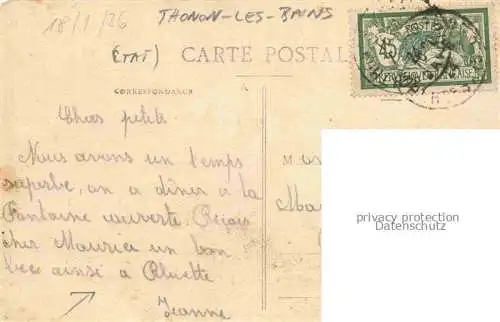 18/1/26 THONON-LES-BAINS
(ETAT) CARTE POSTAL
CORRESPONDANCE
45
Chers petits
Nous avons un temps
superbe, on a dîner a la
Fontaine couverte. Reçois
cher Maurice un bon
bec ainsi à Pluette
Jeanne
M
Ma
privacy protection
Datenschutz